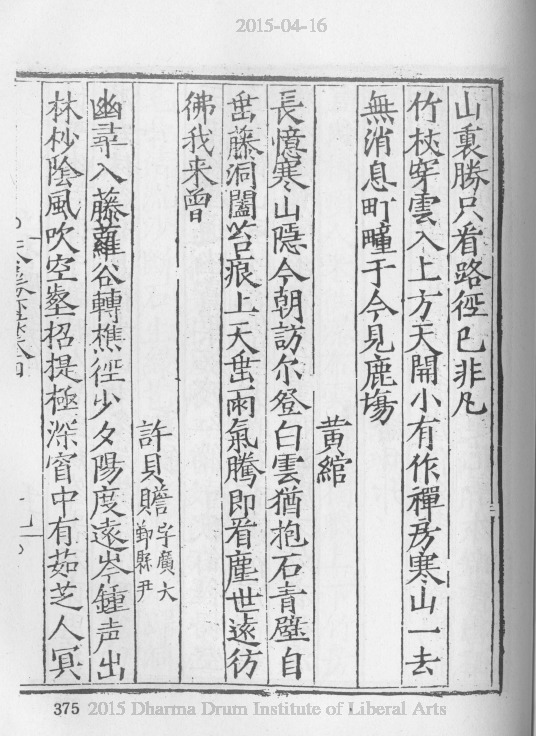 2015-04-16
山裏勝只看路徑已非凡
竹杖穿雲入上方天開小有作禪房寒山一去
無消息町疃于今見鹿塲
黄綰
長憶寒山隱今朝訪尔登白雲猶抱石青壁自
垂藤洞闔苔痕上天垂雨氣騰即看塵世遠彷
彿我来曾
許貝贍字廣大鄞縣尹
幽尋入藤蘿谷轉樵徑少夕陽度遠岑鐘声出
林杪陰風吹空壑招提極深窅中有茹芝人冥
375 2015 Dharma Drum Institute of Liberal Arts